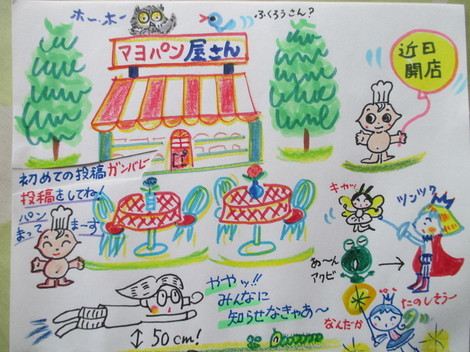 ホー、ホー
ふくろうさん?
マヨパン屋さん
近日
開店
初めての投稿ガンバレー
投稿をしてね!
パン
まってまーす
キャッ
ツンツク
あ〜ん
アクビ
たのしそう〜
なんだか
ややッ!!
みんなに
知らせなきゃあ〜
↕50cm!